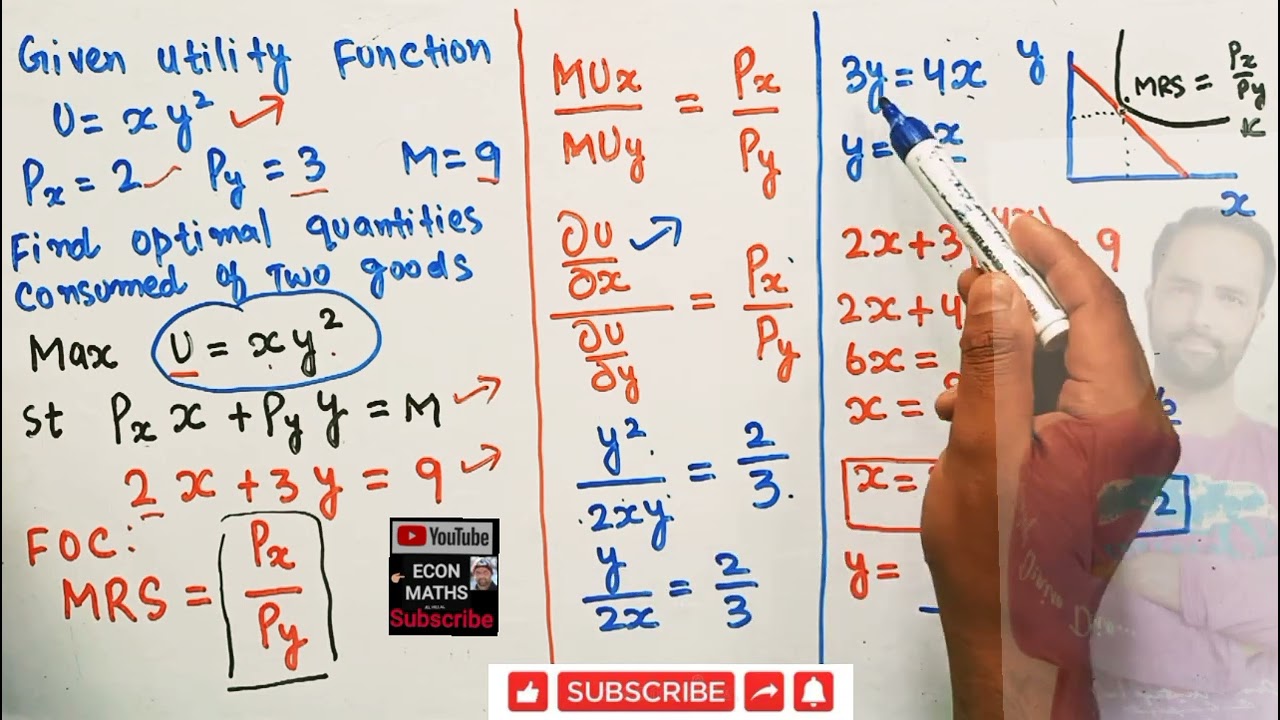 Given utility Function
U = xy²
Px = 2 Py = 3 M = 9
Find optimal quantities
consumed of Two goods
Max U = xy²
st Px x + Py y = M
2x + 3y = 9
FOC:
MRS = Px/Py
YouTube
ECON
MATHS
Subscribe
MUx/MUy = Px/Py
∂U/∂x / ∂U/∂y = Px/Py
y²/2xy = 2/3
y/2x = 2/3
3y = 4x
y =
2x + 3
9
2x + 4
6x =
x =
x =
2
y =
y
MRS = Px/Py
x
SUBSCRIBE